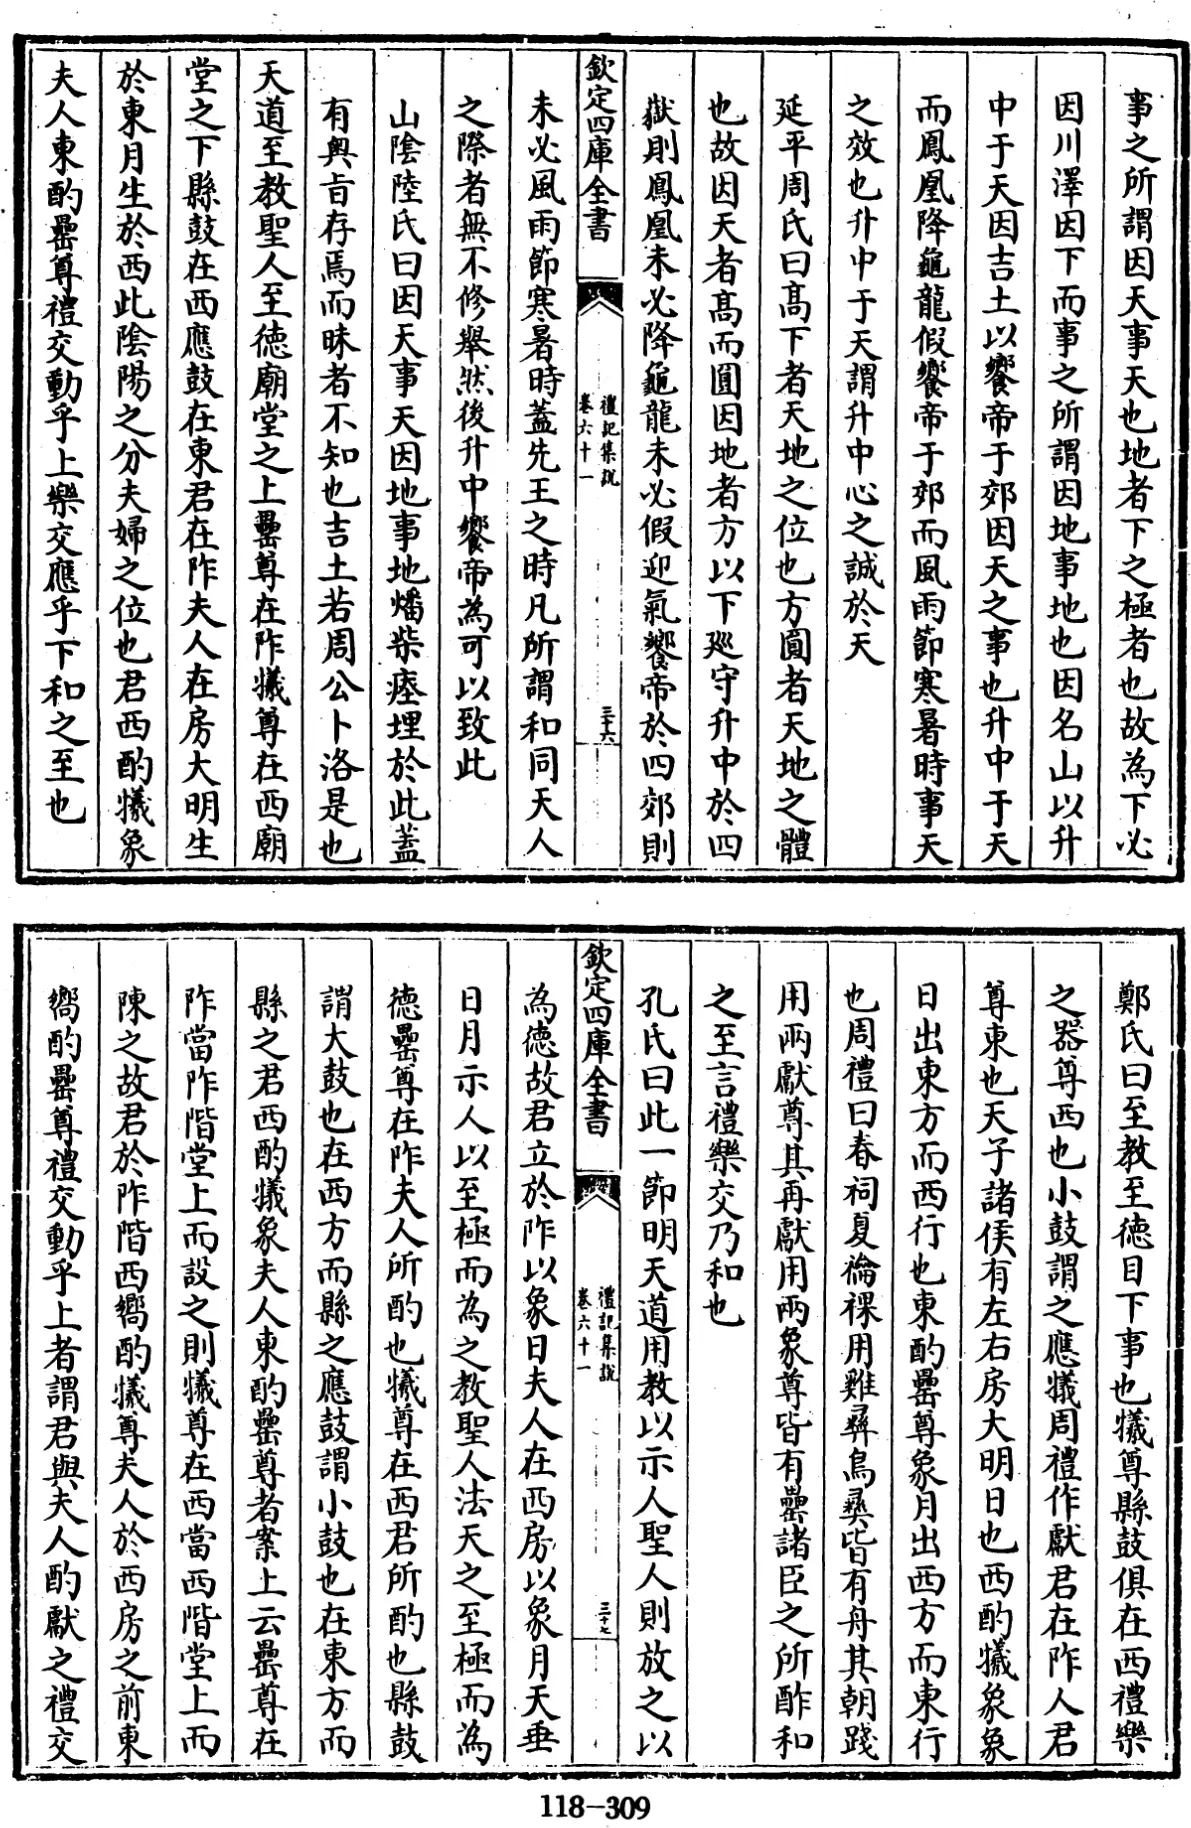 事之所謂因天事天也地者下之極者也故為下必
因川澤因下而事之所謂因地事地也因名山以升
中于天因吉土以饗帝于郊因天之事也升中于天
而鳳凰降龜龍假饗帝于郊而風雨節寒暑時事天
之效也升中于天謂升中心之誠於天
延平周氏曰髙下者天地之位也方圓者天地之體
也故因天者髙而圓因地者方以下廵守升中於四
嶽則鳳凰未必降龜龍未必假迎氣饗帝於四郊則
欽定四庫全書
禮記集說
卷六十一
三十六
未必風雨節寒暑時蓋先王之時凡所謂和同天人
之際者無不修舉然後升中饗帝為可以致此
山隂陸氏曰因天事天因地事地燔柴瘞埋於此蓋
有輿㫖存焉而昧者不知也吉土若周公卜洛是也
天道至教聖人至徳廟堂之上罍尊在阼犧尊在西廟
堂之下縣鼓在西應鼓在東君在阼夫人在房大明生
於東月生於西此隂陽之分夫婦之位也君西酌犧象
夫人東酌罍尊禮交動乎上樂交應乎下和之至也
鄭氏曰至教至徳目下事也犧尊縣鼓俱在西禮樂
之器尊西也小鼓謂之應犧周禮作獻君在阼人君
尊東也天子諸侯有左右房大明日也西酌犧象象
日出東方而西行也東酌罍尊象月出西方而東行
也周禮曰春祠夏禴祼用雞彛鳥彛皆有舟其朝踐
用兩獻尊其再獻用兩象尊皆有罍諸臣之所酢和
之至言禮樂交乃和也
孔氏曰此一節明天道用教以示人聖人則放之以
欽定四庫全書
禮記集說
卷六十一
三十七
為徳故君立於阼以象日夫人在西房以象月天垂
日月示人以至極而為之教聖人法天之至極而為
徳罍尊在阼夫人所酌也犧尊在西君所酌也縣鼓
謂大鼓也在西方而縣之應鼓謂小鼓也在東方而
縣之君西酌犧象夫人東酌罍尊者案上云罍尊在
阼當阼階堂上而設之則犧尊在西當西階堂上而
陳之故君於阼階西嚮酌犧尊夫人於西房之前東
嚮酌罍尊禮交動乎上者謂君與夫人酌獻之禮交
118-309